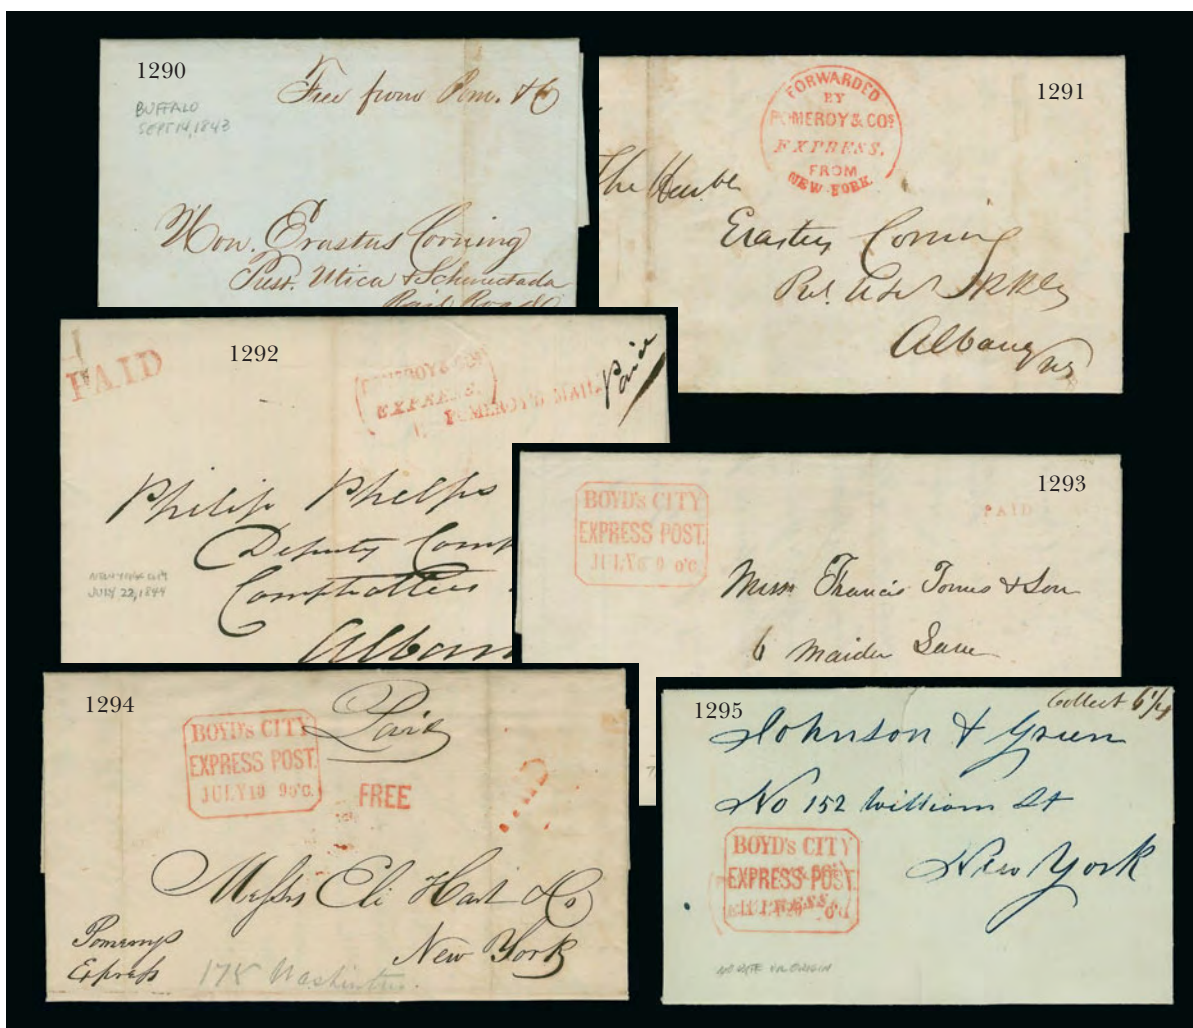 1290
BUFFALO
SEPT 14, 1843
Free from Pom. & Co
Hon. Erastus Corning
Prest. Utica & Schenectada
Rail Road Co
1291
FORWARDED
BY
POMEROY & COs
EXPRESS.
FROM
NEW-YORK.
The Honble
Erastus Corning
Albany
Ny
1292
PAID
POMEROY & COs
EXPRESS.
POMEROY'S MAIL
Paid
Philip Phelps
Deputy Comp
Comptrollers
Alban
NEW YORK CITY
JULY 22, 1844
1293
BOYD's CITY
EXPRESS POST.
JULY 6 9 o'c.
PAID
Messrs Francis Tomes & Son
6 Maiden Lane
1294
BOYD's CITY
EXPRESS POST.
JULY 19 9 o'c.
Paid
FREE
Messrs Eli Hart & Co
New York
Pomeroys
Express
178 Washington
1295
Collect 6¼
Johnson & Green
No 152 William St
New York
BOYD's CITY
EXPRESS POST.
EXPRESS
NO DATE NOR ORIGIN